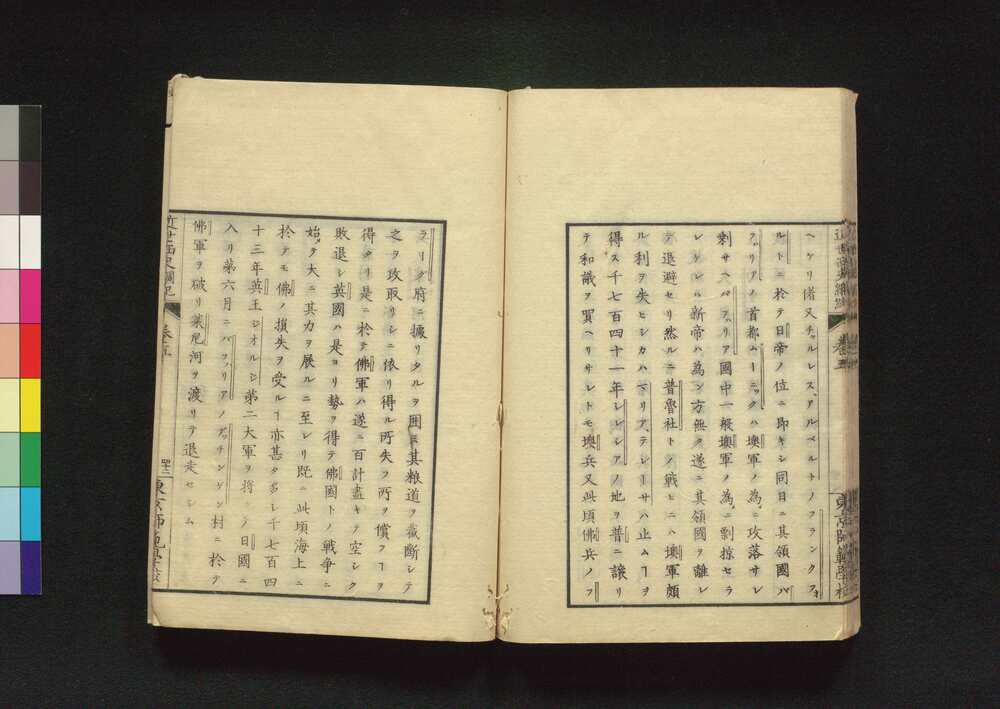 ヘケリ偖又チャルレス、アルベルトノフランクフォ
ルトニ於テ日帝ノ位ニ即キシ同日ニ其領國バ
ヴリアノ首都ムーニック八墺軍ノ為ニ攻落サレ
剰サヘバヴリア國中一般墺軍ノ為ニ剽掠セラ
レケレハ新帝ハ為ン方無ク遂ニ其領國ヲ離レ
テ退避セリ然ルニ普魯社トノ戰ヒニハ墺軍頗
ル利ヲ失ヒシカハマリア、テレーサハ止ムヿヲ
得ス千七百四十一年シレシアノ地ヲ普ニ譲リ
テ和議ヲ買ヘリサレトモ墺兵又此頃佛兵ノプ
ラーグ府ニ據リタルヲ囲ミ其粮道ヲ截断シテ
之ヲ攻取リシニ依リ得ル所失フ所ヲ償フヿヲ
得タリ是ニ於テ佛軍ハ遂ニ百計盡キテ空シク
敗退シ英國ハ是ヨリ勢ヲ得テ佛國トノ戰争ニ
始メテ大ニ其力ヲ展ルニ至レリ既ニ此頃海上ニ
於テモ佛ノ損失ヲ受ルヿ亦甚タ多シ千七百四
十三年英王ジオルジ第二大軍ヲ将ヰテ日國ニ
入リ第六月ニバヴリアノデチンゲン村ニ於テ
佛軍ヲ破リ萊尼河ヲ渡リテ退走セシム
近世西史綱紀
卷五
四十三
東京師範學校